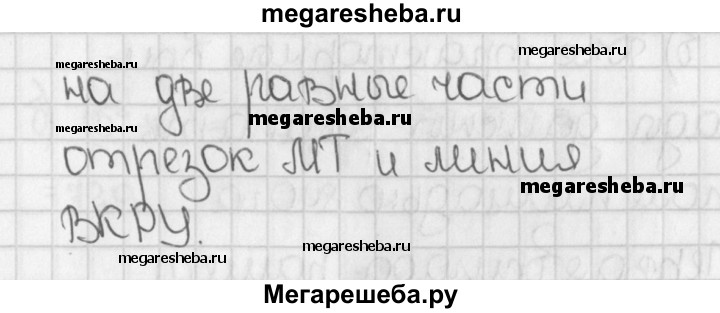 megaresheba.ru
megaresheba.ru
megaresheba.ru
на две равные части
megaresheba.ru
megaresheba.ru
отрезок МТ и линия
megaresheba.ru
ВКРУ.
megaresheba.ru
megaresheba.ru
Мегарешеба.ру